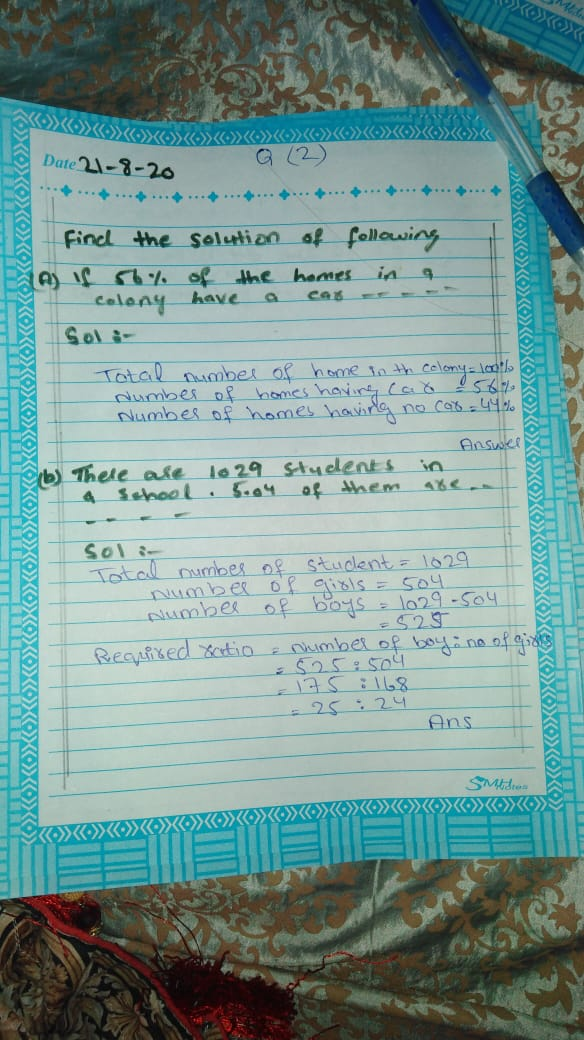 Date 21-8-20
Q (2)
Find the Solution of following
(A) If 56% of the homes in a
colony have a car -----
Sol :-
Total number of home in th colony = 100%
Number of homes having Car = 56%
Number of homes having no car = 44%
Answer
(b) There are 1029 Students in
a School. 5.04 of them are --
-----
Sol :-
Total number of student = 1029
Number of girls = 504
Number of boys = 1029 - 504
= 525
Required ratio = number of boy : no of girls
= 525 : 504
= 175 : 168
= 25 : 24
Ans